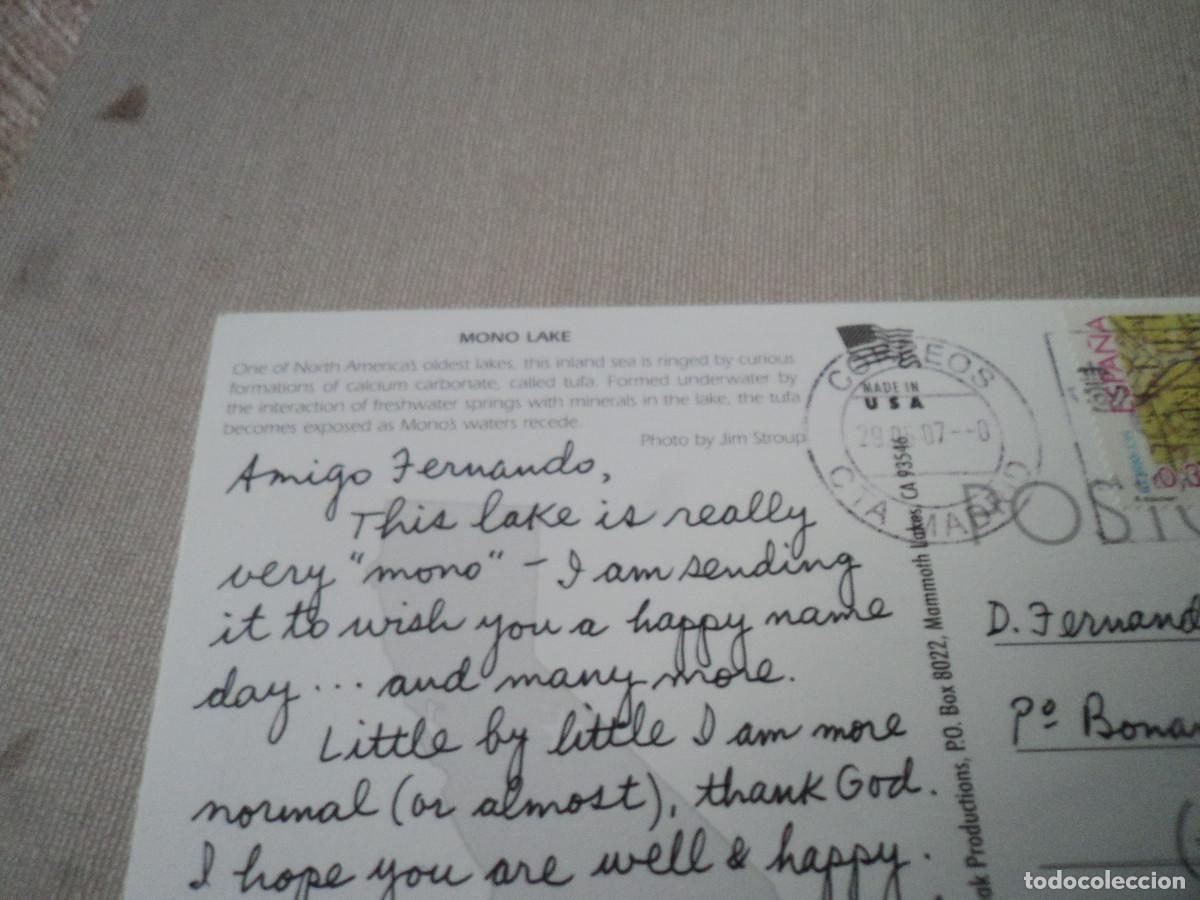 MONO LAKE
One of North America's oldest lakes, this inland sea is ringed by curious
formations of calcium carbonate, called tufa. Formed underwater by
the interaction of freshwater springs with minerals in the lake, the tufa
becomes exposed as Mono's waters recede.
Photo by Jim Stroup
Amigo Fernando,
This lake is really
very "mono" - I am sending
it to wish you a happy name
day... and many more.
Little by little I am more
normal (or almost), thank God.
I hope you are well & happy.
MADE IN
USA
CORREOS
07--8
CTA MADRID
ESPAÑA
POST
ak Productions, P.O. Box 8022, Mammoth Lakes, CA 93546
D. Fernand
Pº Bona
todocoleccion